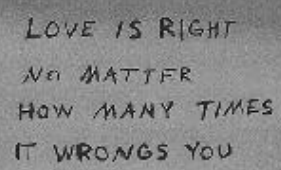 LOVE IS RIGHT
NO MATTER
HOW MANY TIMES
IT WRONGS YOU